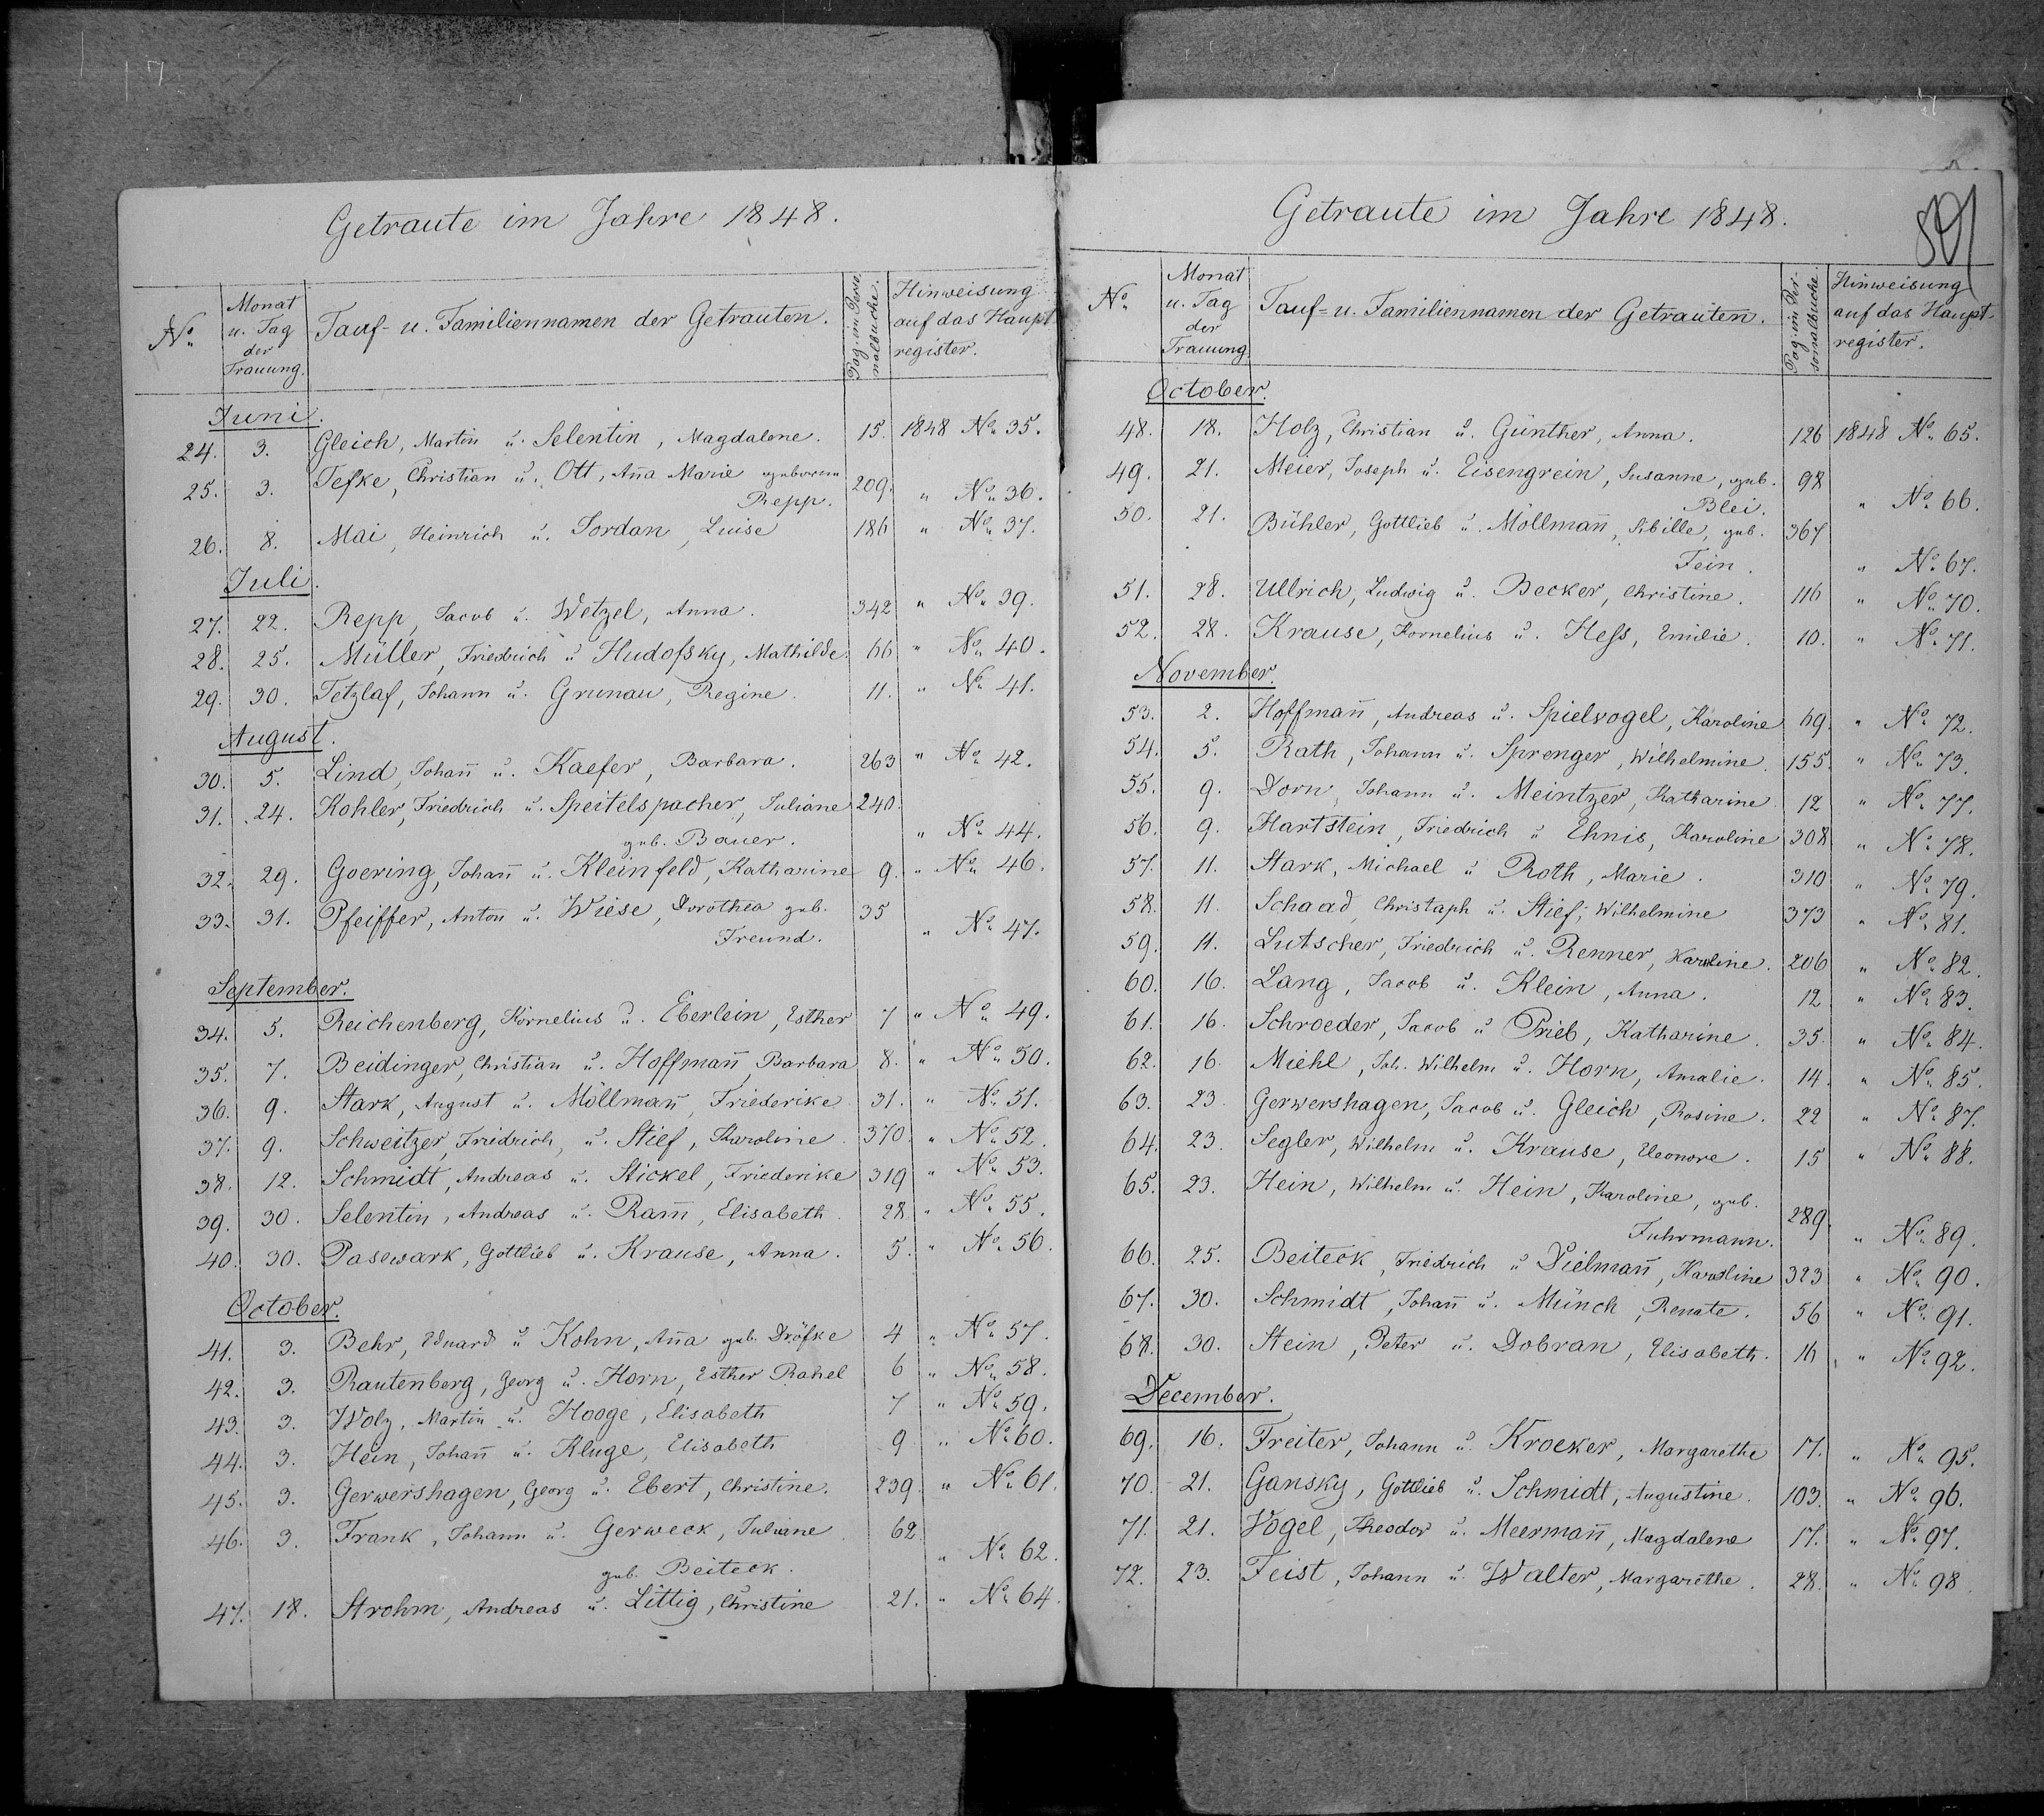 Getraute im Jahre 1848.
No. | Monat u. Tag der Trauung. | Tauf- u. Familiennamen der Getrauten. | Pag. im Perso- nalbuche. | Hinweisung auf das Haupt- register.
Juni.
24. 3. Gleich, Martin u. Selentin, Magdalene. 15. 1848 No. 35.
25. 3. Tefke, Christian u. Ott, An̄a Marie geborene 209.
Repp. " No. 36.
26. 8. Mai, Heinrich u. Jordan, Luise 186 " No. 37.
Juli.
27. 22. Repp, Jacob u. Wetzel, Anna. 342 " No. 39.
28. 25. Müller, Friedrich u. Hudofsky, Mathilde. 66 " No. 40.
29. 30. Tetzlaf, Johann u. Grunau, Regine. 11. " No. 41.
August.
30. 5. Lind, Johan̄ u. Kaefer, Barbara. 263 " No. 42.
31. 24. Kohler, Friedrich u. Speitelspacher, Juliane 240.
geb. Bauer. " No. 44.
32. 29. Goering, Johan̄ u. Kleinfeld, Katharine 9. " No. 46.
33. 31. Pfeiffer, Anton u. Wiese, Dorothea geb. 35
Freund. " No. 47.
September.
34. 5. Reichenberg, Kornelius u. Eberlein, Esther 7 " No. 49.
35. 7. Beidinger, Christian u. Hoffman̄, Barbara 8. " No. 50.
36. 9. Stark, August u. Möllman̄, Friederike 31. " No. 51.
37. 9. Schweitzer, Friedrich, u. Stief, Karoline. 370. " No. 52.
38. 12. Schmidt, Andreas u. Stickel, Friederike 319 " No. 53.
39. 30. Selentin, Andreas u. Ram̄, Elisabeth. 28 " No. 55.
40. 30. Pasewark, Gottlieb u. Krause, Anna. 5. " No. 56.
October.
41. 3. Behr, Eduard u. Kohn, An̄a geb. Dröfke 4 " No. 57.
42. 3. Rautenberg, Georg u. Horn, Esther Rahel 6 " No. 58.
43. 3. Wolz, Martin u. Hooge, Elisabeth 7 " No. 59.
44. 3. Hein, Johan̄ u. Kluge, Elisabeth 9 " No. 60.
45. 3. Gerwershagen, Georg u. Ebert, Christine. 239. " No. 61.
46. 3. Frank, Johann u. Gerweck, Juliane 62.
geb. Beiteck. " No. 62.
47. 18. Strohm, Andreas u. Littig, Christine 21. " No. 64.
Getraute im Jahre 1848.
No. | Monat u. Tag der Trauung. | Tauf- u. Familiennamen der Getrauten. | Pag. im Per- sonalbuche | Hinweisung auf das Haupt- register.
October.
48. 18. Holz, Christian u. Günther, Anna. 126 1848 No. 65.
49. 21. Meier, Joseph u. Eisengrein, Susanne, geb. 98
Blei. " No. 66.
50. 21. Bühler, Gottlieb u. Möllman̄, Sibille, geb. 367
Fein. " No. 67.
51. 28. Ullrich, Ludwig u. Becker, Christine. 116 " No. 70.
52. 28. Krause, Kornelius u. Heß, Emilie. 10. " No. 71.
November.
53. 2. Hoffman̄, Andreas u. Spielvogel, Karoline 69. " No. 72.
54. 5. Rath, Johann u. Sprenger, Wilhelmine. 155. " No. 73.
55. 9. Dorn, Johann u. Meintzer, Katharine 12 " No. 77.
56. 9. Hartstein, Friedrich u. Ehnis, Karoline 308 " No. 78.
57. 11. Stark, Michael u. Roth, Marie. 310 " No. 79.
58. 11. Schaad, Christaph u. Stief, Wilhelmine 373 " No. 81.
59. 11. Lutscher, Friedrich u. Renner, Karoline. 206 " No. 82.
60. 16. Lang, Jacob u. Klein, Anna. 12 " No. 83.
61. 16. Schroeder, Jacob u. Prieb, Katharine. 35. " No. 84.
62. 16. Miehl, Joh. Wilhelm u. Horn, Amalie. 14. " No. 85.
63. 23. Gerwershagen, Jacob u. Gleich, Rosine. 22 " No. 87.
64. 23. Segler, Wilhelm u. Krause, Eleonore. 15 " No. 88.
65. 23. Hein, Wilhelm u. Hein, Karoline, geb.
Fuhrmann. 289. " No. 89.
66. 25. Beiteck, Friedrich u. Dielman̄, Karoline 323 " No. 90.
67. 30. Schmidt, Johan̄ u. Münch, Renate. 56 " No. 91.
68. 30. Stein, Peter u. Dobran, Elisabeth. 16 " No. 92.
December.
69. 16. Freiter, Johann u. Kroeker, Margarethe 17. " No. 95.
70. 21. Gansky, Gottlieb u. Schmidt, Augustine. 103. " No. 96.
71. 21. Vogel, Theodor u. Meerman̄, Magdalena 17. " No. 97.
72. 23. Feist, Johann u. Walter, Margarethe. 28. " No. 98.